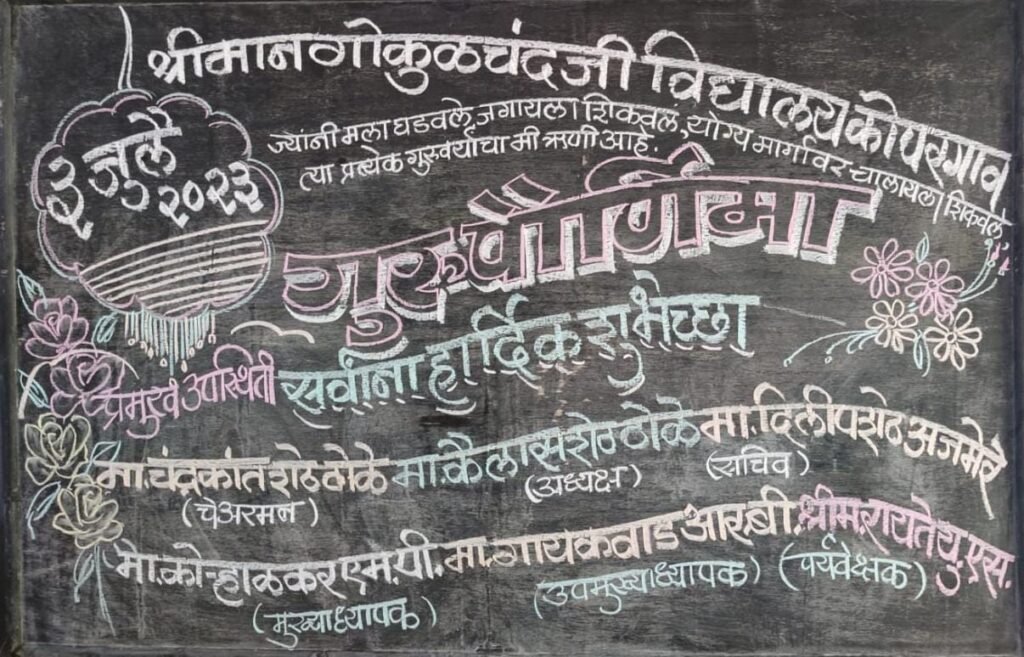 श्रीमान गोकुळचंदजी विद्यालय कोपरगाव
३ जुलै
२०२३
ज्यांनी मला घडवले, जगायला शिकवलं, योग्य मार्गावर चालायला शिकवले,
त्या प्रत्येक गुरुवर्यांचा मी ऋणी आहे.
गुरुपौर्णिमा
सर्वांना हार्दिक शुभेच्छा
प्रमुख उपस्थिती
मा. चंद्रकांत शेठ ठोळे मा. कैलास शेठ ठोळे मा. दिलीप शेठ अजमेरे
(चेअरमन) (अध्यक्ष) (सचिव)
मा. कोऱ्हाळकर एम. पी. मा. गायकवाड आर. बी. श्रीम. रायते यु. एस.
(मुख्याध्यापक) (उपमुख्याध्यापक) (पर्यवेक्षक)